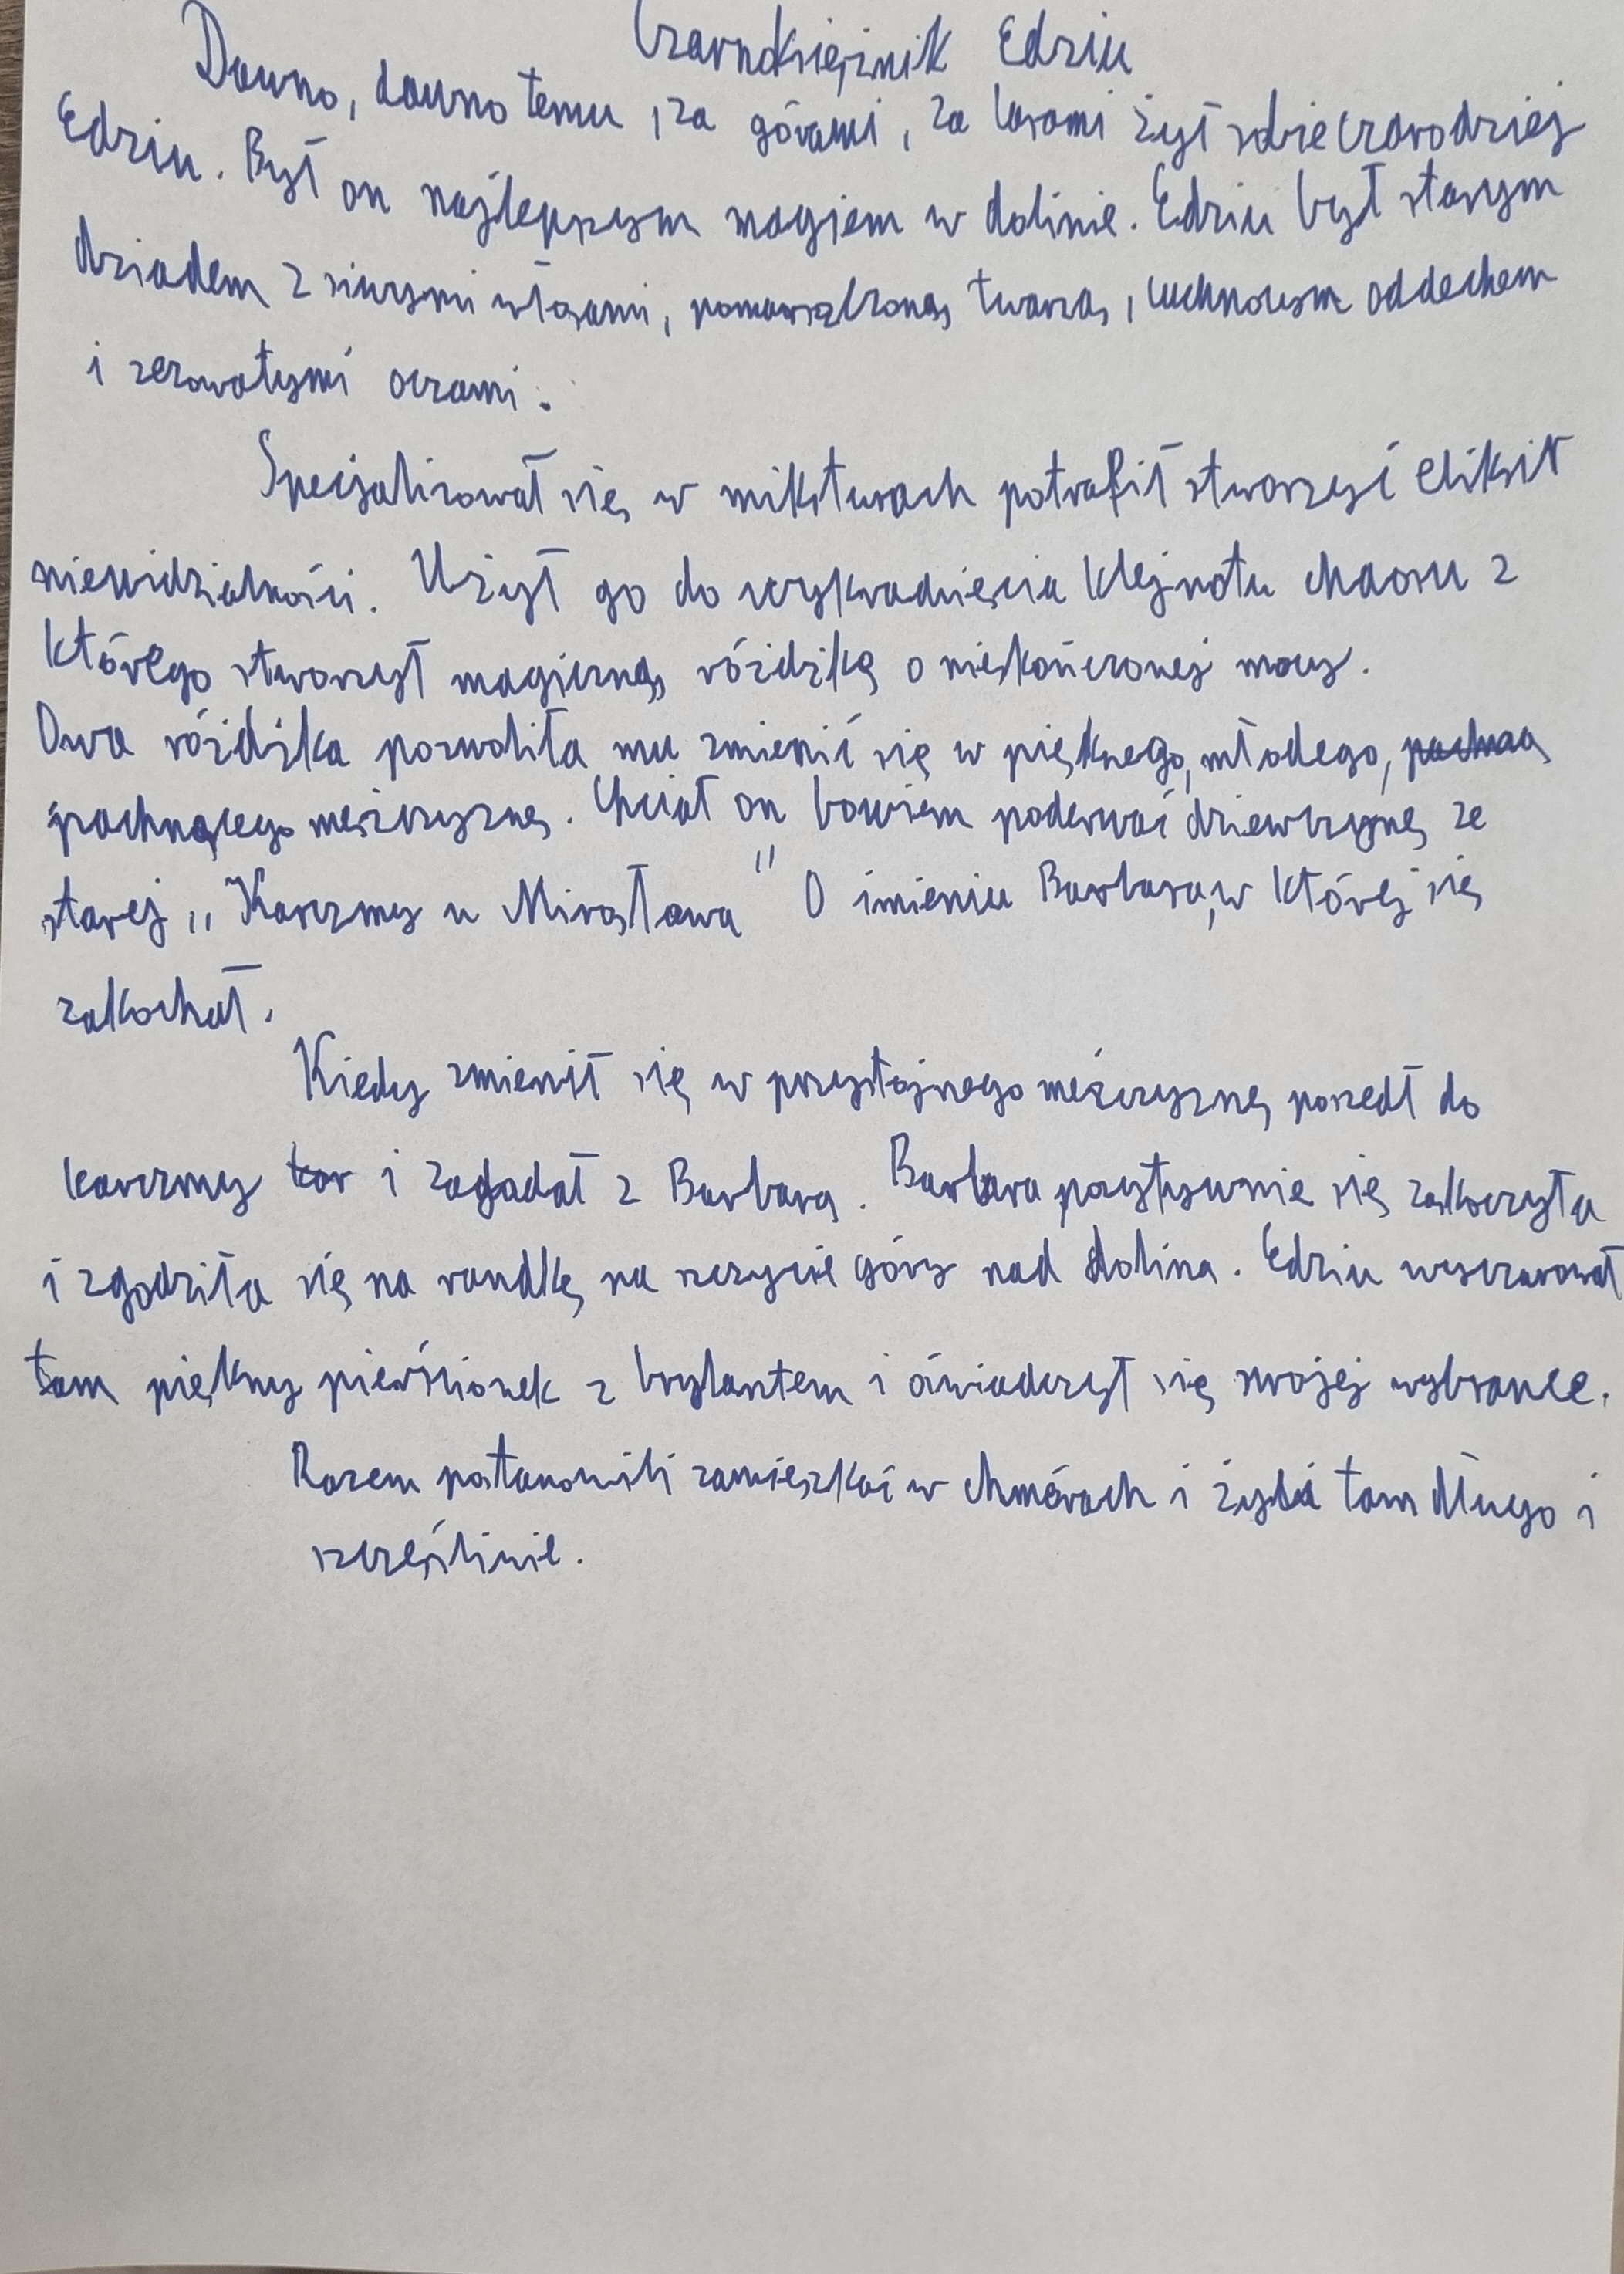 Czarnoksiężnik Edziu
Dawno, dawno temu, za górami, za lasami żył sobie czarodziej
Edziu. Był on najlepszym magiem w dolinie. Edziu był starym
dziadem z siwymi włosami, pomarszczoną twarzą, cuchnącym oddechem
i zezowatymi oczami.
Specjalizował się w miksturach potrafił stworzyć eliksir
niewidzialności. Użył go do wykradnięcia klejnotu chaosu z
którego stworzył magiczną różdżkę o nieskończonej mocy.
Owa różdżka pozwoliła mu zmienić się w pięknego, młodego,
pachnącego meżczyznę. Chciał on bowiem poderwać dziewczynę ze
starej „Karczmy u Mirosława" O imieniu Barbara, w której się
zakochał.
Kiedy zmienił się w przystojnego meżczyznę poszedł do
karczmy kar i zagadał z Barbarą. Barbara pozytywnie się zaskoczyła
i zgodziła się na randkę na szczycie góry nad doliną. Edziu wyczarował
tam piękny pierścionek z brylantem i oświadczył się swojej wybrance.
Razem postanowili zamieszkać w chmórach i żyli tam długo i
szczęśliwie.